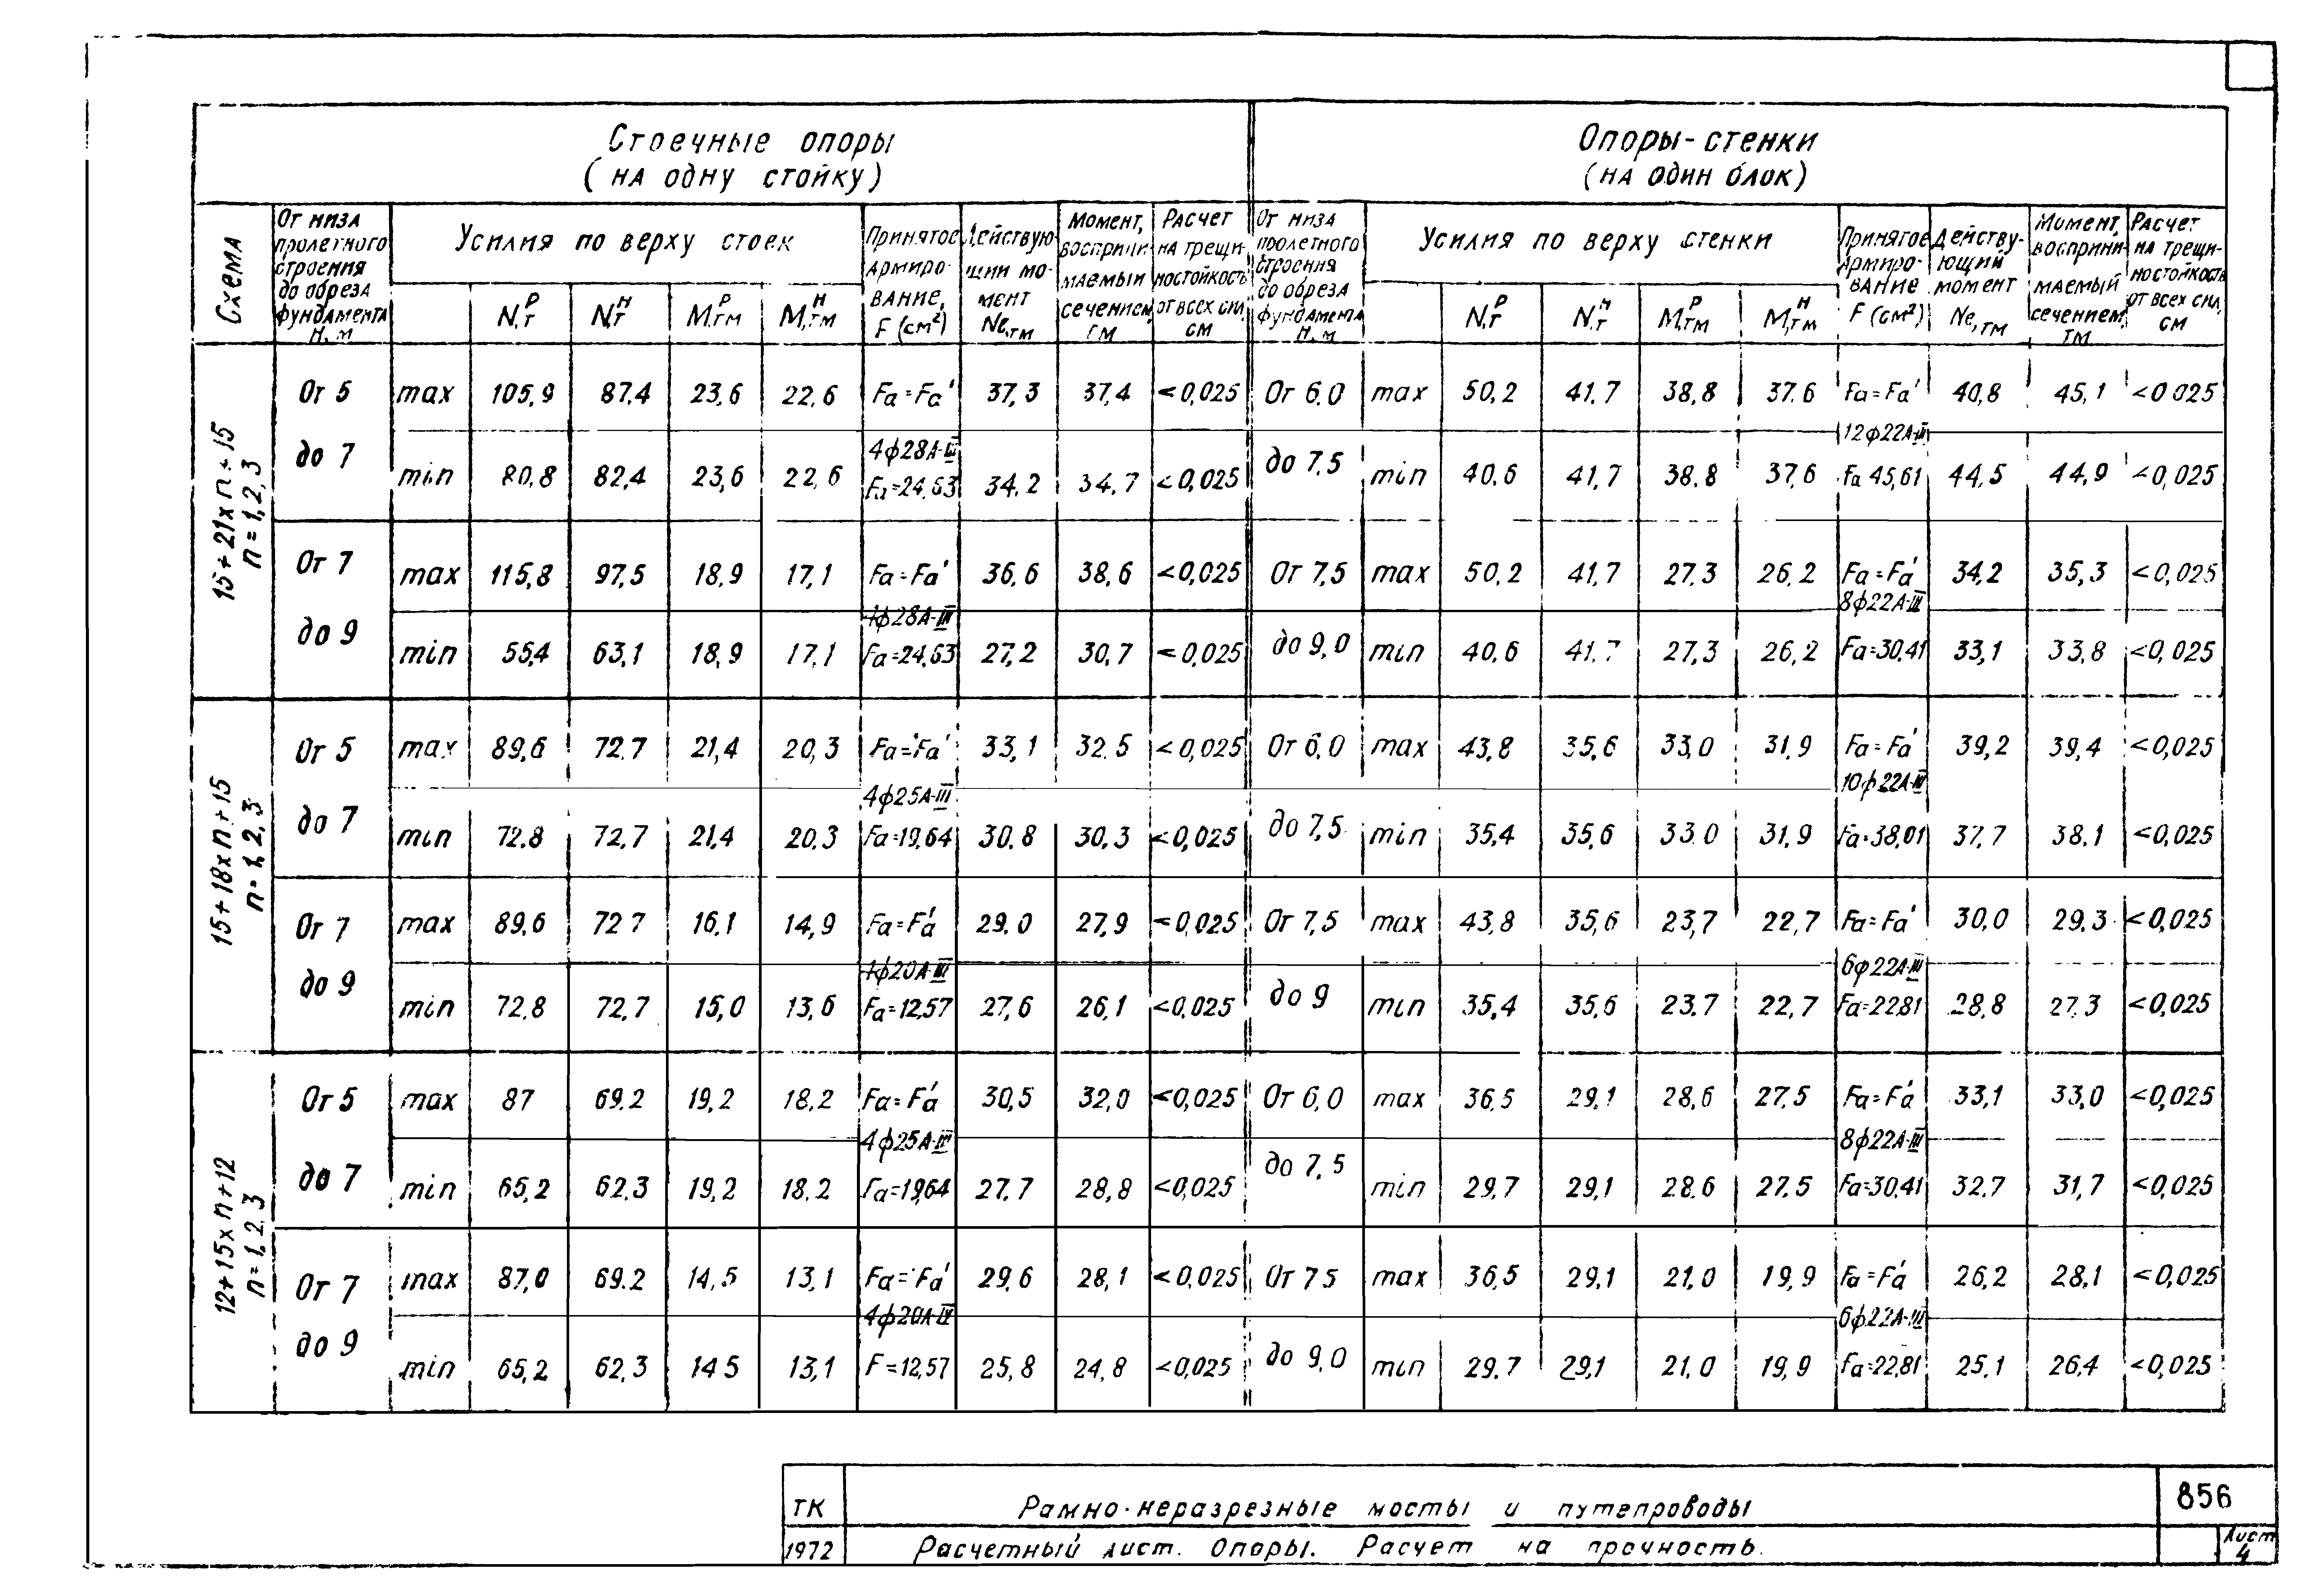 Стоечные опоры
(на одну стойку)
Опоры-стенки
(на один блок)
Схема
От низа пролетного строения до обреза фундамента Н, м
Усилия по верху стоек
Принятое армирование, F (см²)
Действующий момент Ne, тм
Момент, воспринимаемый сечением, тм
Расчет на трещиностойкость от всех сил, см
От низа пролетного строения до обреза фундамента Н, м
Усилия по верху стенки
Принятое армирование F (см²)
Действующий момент Ne, тм
Момент, воспринимаемый сечением, тм
Расчет на трещиностойкость от всех сил, см
Nᴾ, т Nᴴ, т Mᴾ, тм Mᴴ, тм
Nᴾ, т Nᴴ, т Mᴾ, тм Mᴴ, тм
15+21×n+15
n=1,2,3
От 5 max 105,9 87,4 23,6 22,6 Fa=Fa' 37,3 37,4 <0,025 От 6,0 max 50,2 41,7 38,8 37,6 Fa=Fa' 40,8 45,1 <0,025
4ф28А-III 12ф22А-III
до 7 min 80,8 82,4 23,6 22,6 Fa=24,63 34,2 34,7 <0,025 до 7,5 min 40,6 41,7 38,8 37,6 Fa 45,61 44,5 44,9 <0,025
От 7 max 115,8 97,5 18,9 17,1 Fa=Fa' 36,6 38,6 <0,025 От 7,5 max 50,2 41,7 27,3 26,2 Fa=Fa' 34,2 35,3 <0,025
4ф28А-III 8ф22А-III
до 9 min 55,4 63,1 18,9 17,1 Fa=24,63 27,2 30,7 <0,025 до 9,0 min 40,6 41,7 27,3 26,2 Fa=30,41 33,1 33,8 <0,025
15+18×n+15
n=1,2,3
От 5 max 89,6 72,7 21,4 20,3 Fa=Fa' 33,1 32,5 <0,025 От 6,0 max 43,8 35,6 33,0 31,9 Fa=Fa' 39,2 39,4 <0,025
4ф25А-III 10ф22А-III
до 7 min 72,8 72,7 21,4 20,3 Fa=19,64 30,8 30,3 <0,025 до 7,5 min 35,4 35,6 33,0 31,9 Fa=38,01 37,7 38,1 <0,025
От 7 max 89,6 72,7 16,1 14,9 Fa=Fa' 29,0 27,9 <0,025 От 7,5 max 43,8 35,6 23,7 22,7 Fa=Fa' 30,0 29,3 <0,025
4ф20А-III 6ф22А-III
до 9 min 72,8 72,7 15,0 13,6 Fa=12,57 27,6 26,1 <0,025 до 9 min 35,4 35,6 23,7 22,7 Fa=22,81 28,8 27,3 <0,025
12+15×n+12
n=1,2,3
От 5 max 87 69,2 19,2 18,2 Fa=Fa' 30,5 32,0 <0,025 От 6,0 max 36,5 29,1 28,6 27,5 Fa=Fa' 33,1 33,0 <0,025
4ф25А-III 8ф22А-III
до 7 min 65,2 62,3 19,2 18,2 Fa=19,64 27,7 28,8 <0,025 до 7,5 min 29,7 29,1 28,6 27,5 Fa=30,41 32,7 31,7 <0,025
От 7 max 87,0 69,2 14,5 13,1 Fa=Fa' 29,6 28,1 <0,025 От 7,5 max 36,5 29,1 21,0 19,9 Fa=Fa' 26,2 28,1 <0,025
4ф20А-IV 6ф22А-III
до 9 min 65,2 62,3 14,5 13,1 F=12,57 25,8 24,8 <0,025 до 9,0 min 29,7 29,1 21,0 19,9 Fa=22,81 25,1 26,4 <0,025
ТК Рамно-неразрезные мосты и путепроводы 856
1972 Расчетный лист. Опоры. Расчет на прочность. Лист 4